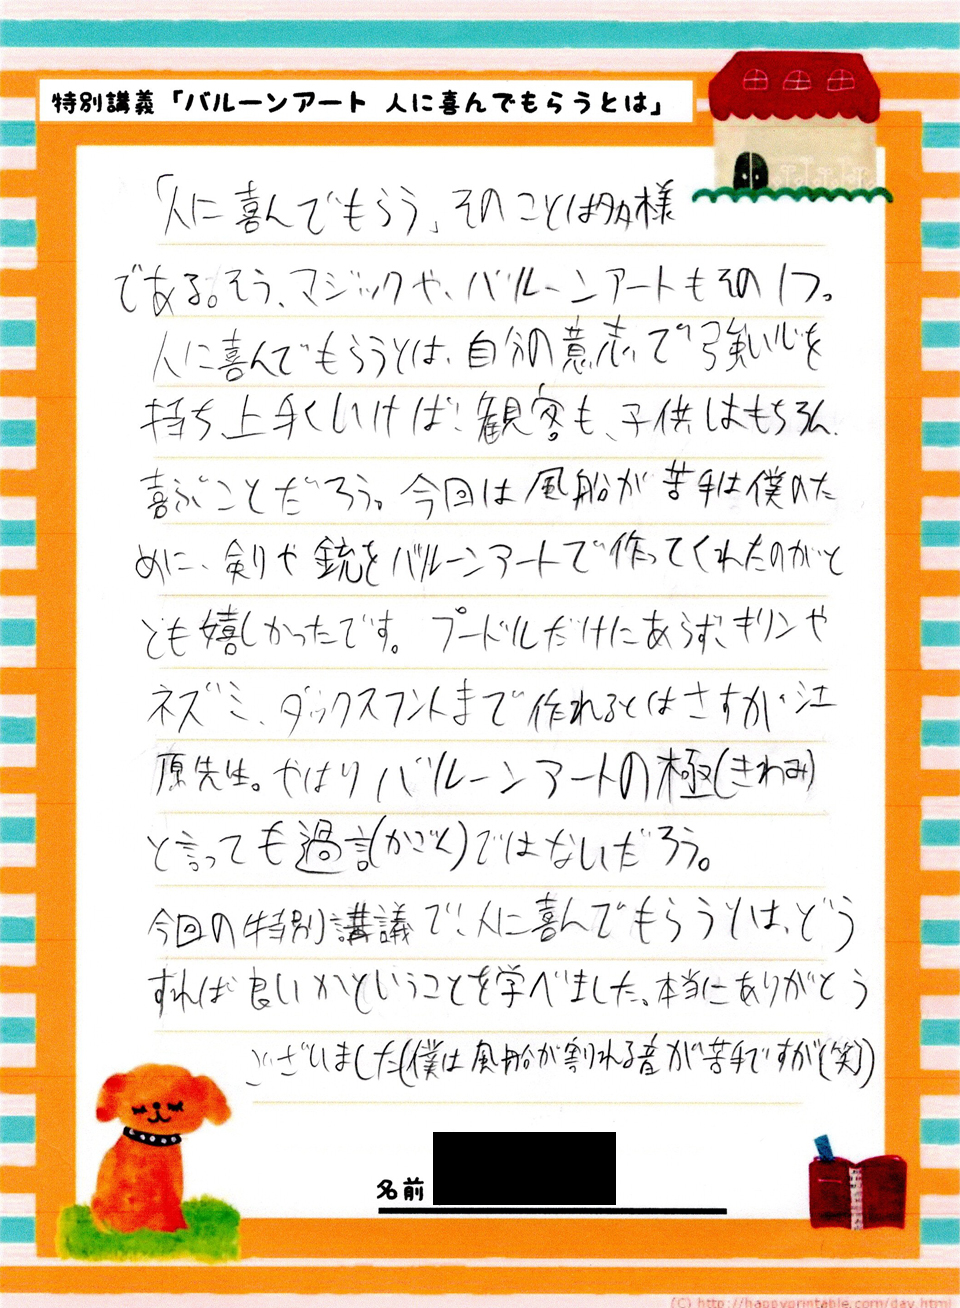 特別講義「バルーンアート 人に喜んでもらうとは」
「人に喜んでもらう」そのことは多様
である。そう、マジックや、バルーンアートもその1つ。
人に喜んでもらうとは、自分の意志で強い心を
持ち、上手くいけば、観客も、子供はもちろん、
喜ぶことだろう。今回は風船が苦手は僕のた
めに、剣や銃をバルーンアートで作ってくれたのがと
とも嬉しかったです。プードルだけにあらず、キリンや
ネズミ、ダックスフントまで作れるとはさすが江
原先生。やはりバルーンアートの極(きわみ)
と言っても過言(かごん)ではないだろう。
今回の特別講議で、人に喜んでもらうとは、どう
すれば良いかということを学べました。本当にありがとう
ございました(僕は風船が割れる音が苦手ですが(笑))
名前
(C) http://happyprintable.com/day.html